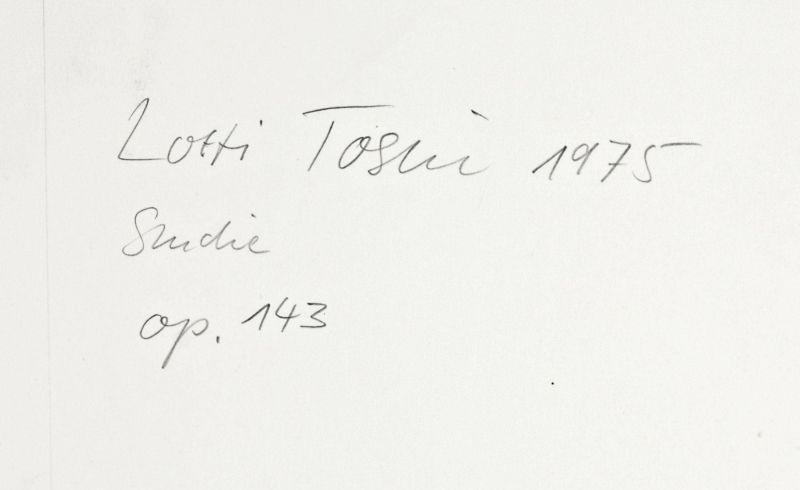 Lotti Tosin 1975
Studie
op. 143